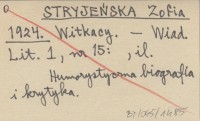 STRYJEŃSKA Zofia
1924. Witkacy. – Wiad.
Lit. 1, nr 15: , il.
Humorystyczna biografia
i krytyka.